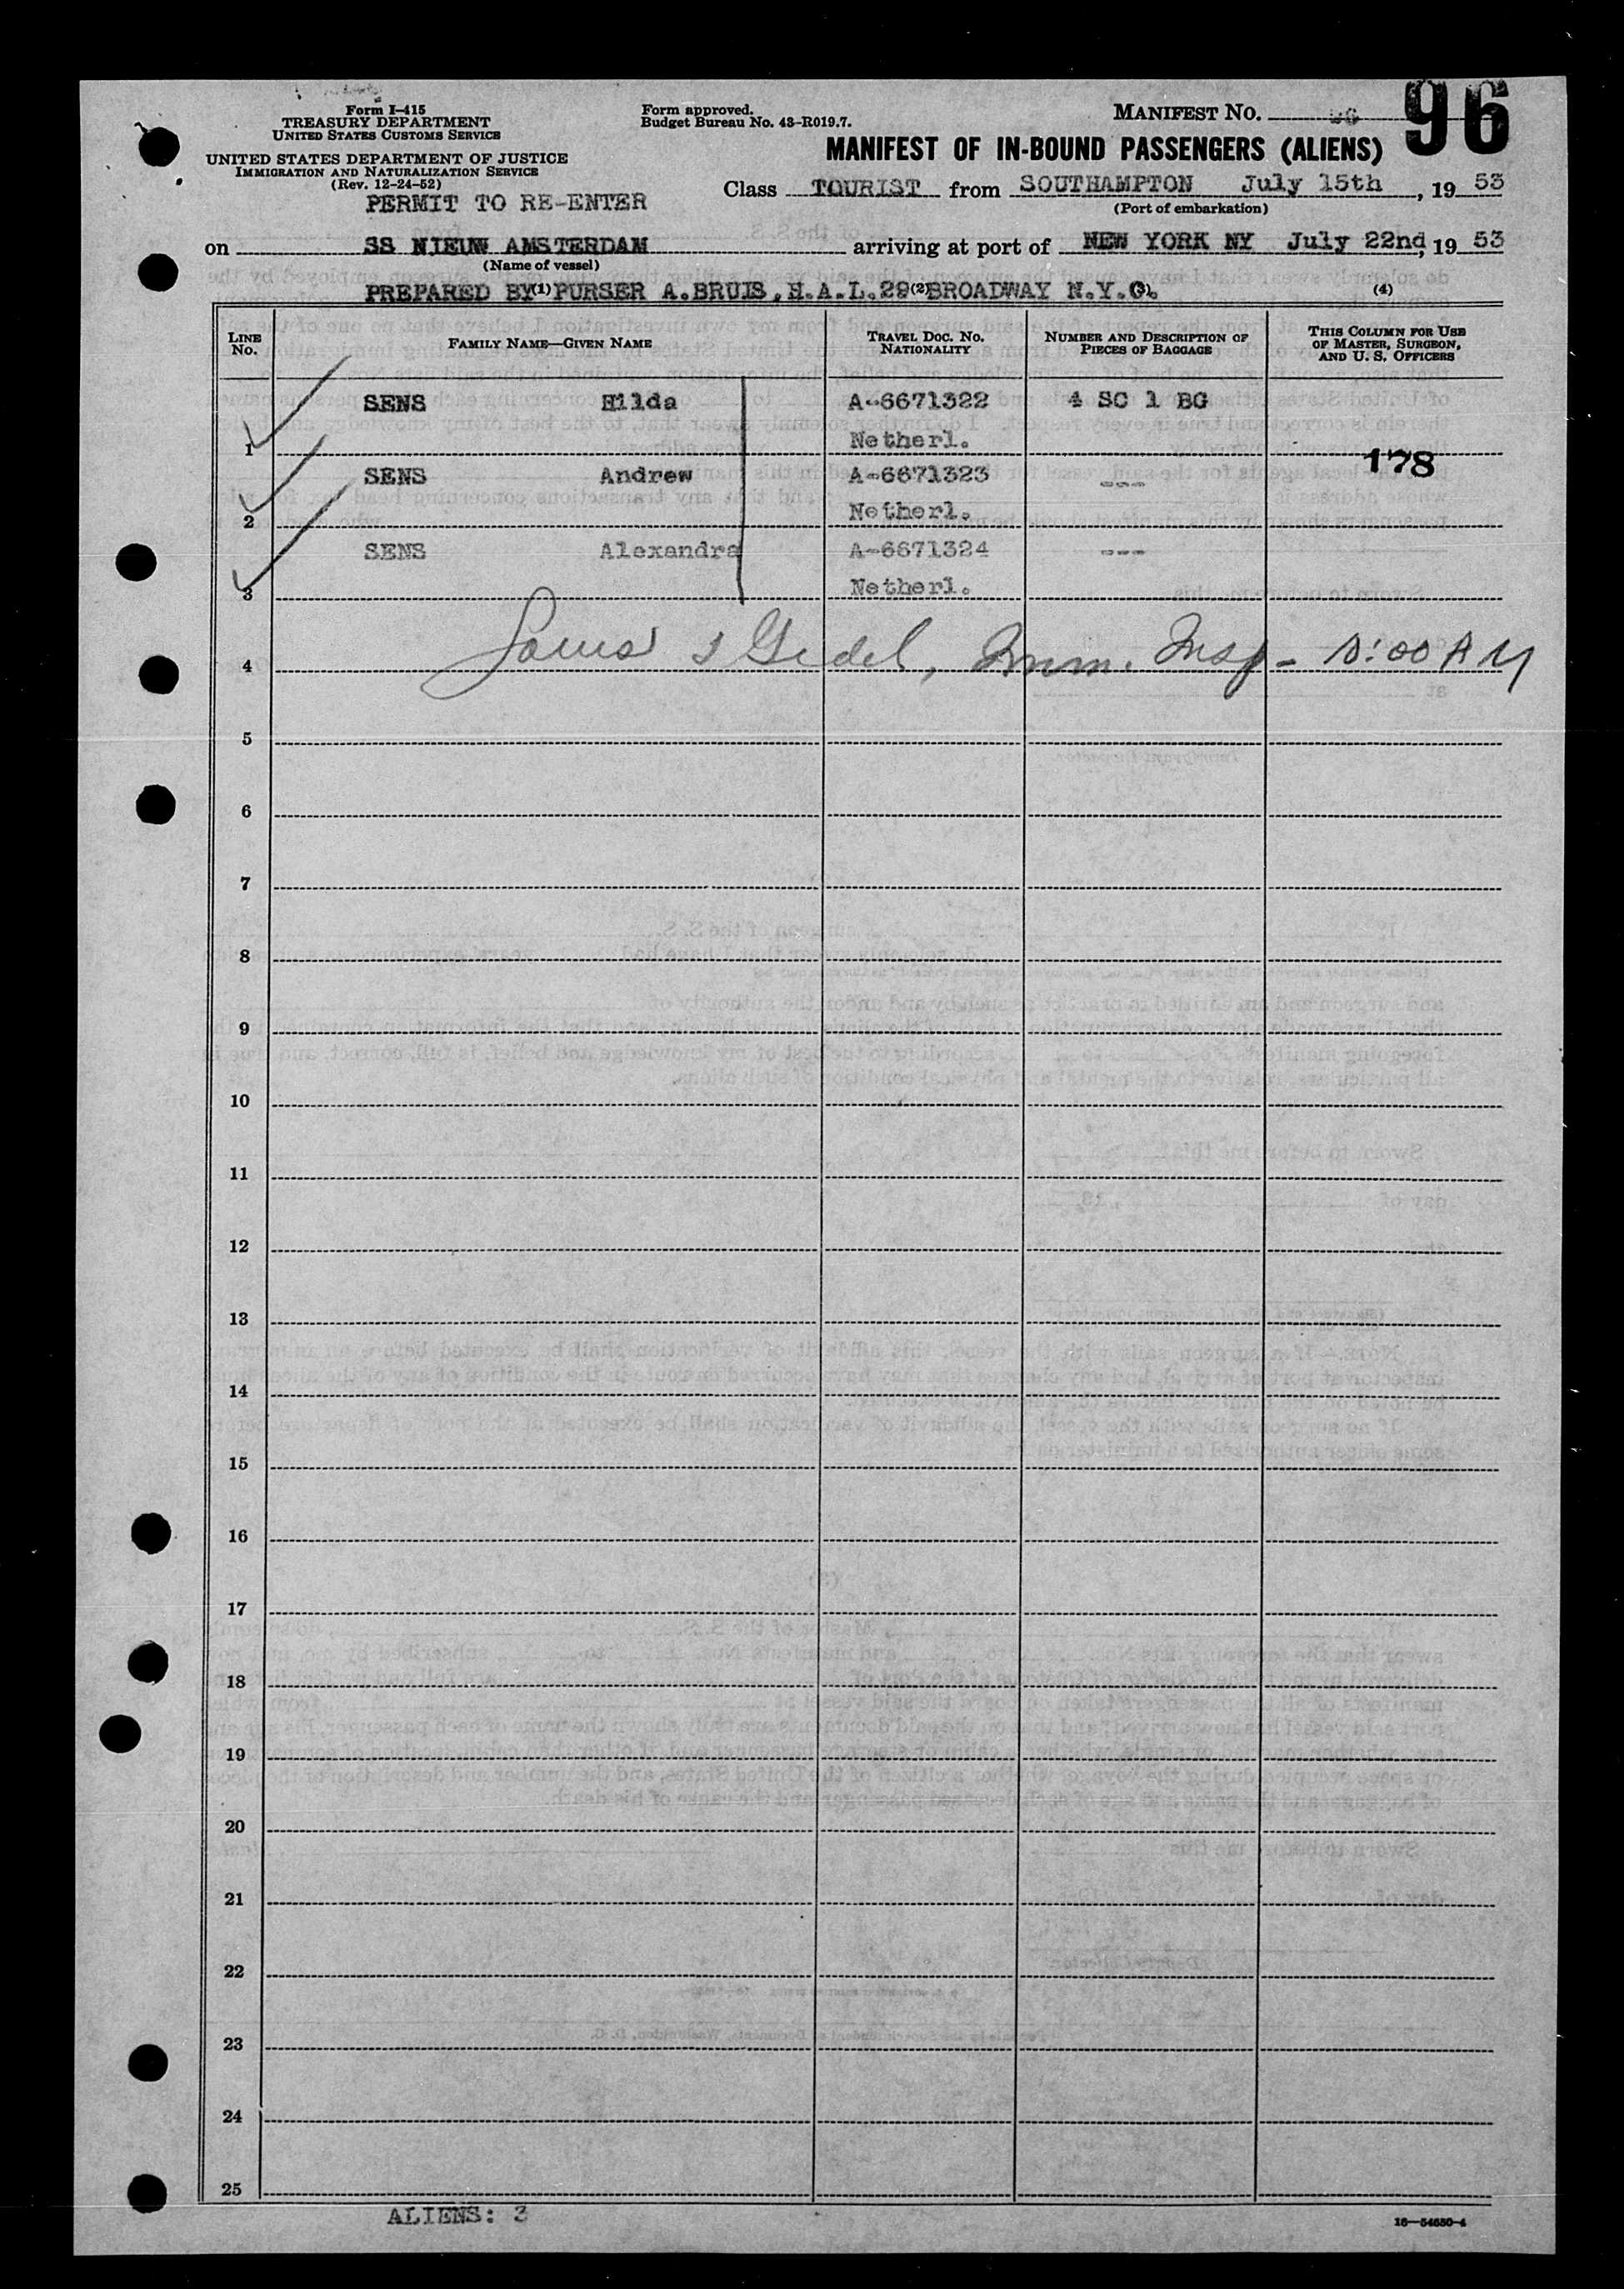 96
Form I-415
TREASURY DEPARTMENT
UNITED STATES CUSTOMS SERVICE
UNITED STATES DEPARTMENT OF JUSTICE
IMMIGRATION AND NATURALIZATION SERVICE
(Rev. 12-24-52)
PERMIT TO RE-ENTER
Form approved.
Budget Bureau No. 43-R019.7.
MANIFEST NO. 96
MANIFEST OF IN-BOUND PASSENGERS (ALIENS)
Class TOURIST from SOUTHAMPTON July 15th, 1953
(Port of embarkation)
on SS NIEUW AMSTERDAM arriving at port of NEW YORK NY July 22nd, 1953
(Name of vessel)
PREPARED BY (1) PURSER A.BRUIS, H.A.L. 29 (2) BROADWAY N.Y.C. (4)
LINE No. FAMILY NAME—GIVEN NAME TRAVEL DOC. NO. NATIONALITY NUMBER AND DESCRIPTION OF PIECES OF BAGGAGE THIS COLUMN FOR USE OF MASTER, SURGEON, AND U. S. OFFICERS
SENS Hilda A-6671322 4 SC 1 BG
1 Netherl.
178
SENS Andrew A-6671323 ---
2 Netherl.
SENS Alexandra A-6671324 ---
3 Netherl.
4 Imm. Insp - 10:00 AM
5
6
7
8
9
10
11
12
13
14
15
16
17
18
19
20
21
22
23
24
25
ALIENS: 3
16—54650-4